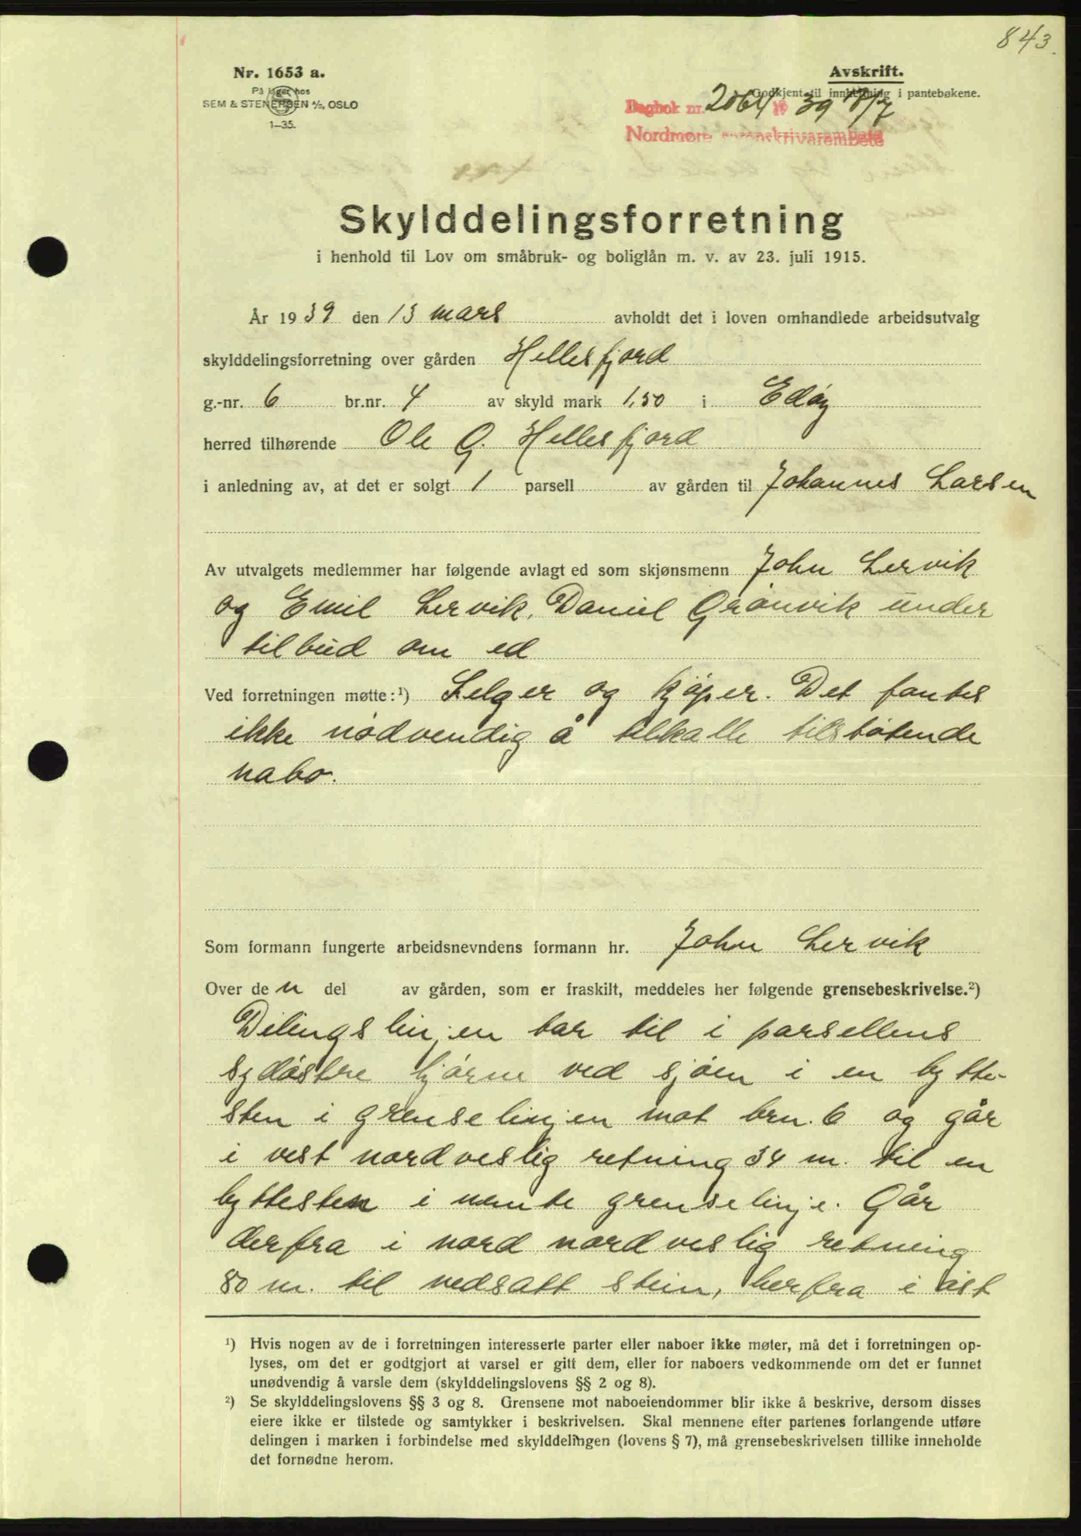 843.
Nr. 1653 a.
På lager hos
SEM & STENERSEN A/S, OSLO
1-35.
Avskrift.
Godkjent til innheftning i pantebøkene.
Dagbok nr. 2064 19 39 8/7
Nordmøre sorenskriverembete
Skylddelingsforretning
i henhold til Lov om småbruk- og boliglån m. v. av 23. juli 1915.
År 1939 den 13 mars avholdt det i loven omhandlede arbeidsutvalg
skylddelingsforretning over gården Hellesfjord
g.-nr. 6 br.nr. 4 av skyld mark 1,50 i Edøy
herred tilhørende Ole G. Hellesfjord
i anledning av, at det er solgt 1 parsell av gården til Johannes Larsen
Av utvalgets medlemmer har følgende avlagt ed som skjønsmenn John Lervik
og Emil Lervik. Daniel Grønvik under
tilbud om ed
Ved forretningen møtte:¹) Selger og kjøper. Det fantes
ikke nødvendig å tilkalle tilstøtende
nabo.
Som formann fungerte arbeidsnevndens formann hr. John Lervik
Over den del av gården, som er fraskilt, meddeles her følgende grensebeskrivelse.²)
Delingslinjen tar til i parsellens
sydøstre hjørne ved sjøen i en bytte-
sten i grenselinjen mot brn. 6 og går
i vest nordveslig retning 34 m. til en
byttesten i nemte grenselinje. Går
derfra i nord nordveslig retning
80 m. til nedsatt stein, herfra i øst
¹) Hvis nogen av de i forretningen interesserte parter eller naboer ikke møter, må det i forretningen op-
lyses, om det er godtgjort at varsel er gitt dem, eller for naboers vedkommende om det er funnet
unødvendig å varsle dem (skylddelingslovens §§ 2 og 8).
²) Se skylddelingslovens §§ 3 og 8. Grensene mot naboeiendommer blir ikke å beskrive, dersom disses
eiere ikke er tilstede og samtykker i beskrivelsen. Skal mennene efter partenes forlangende utføre
delingen i marken i forbindelse med skylddelingen (lovens § 7), må grensebeskrivelsen tillike inneholde
det fornødne herom.